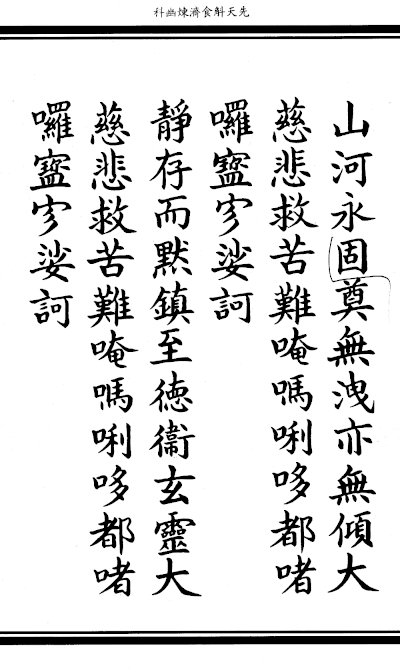 科幽煉濟食斛天先
山河永固奠無洩亦無傾大
慈悲救苦難唵嗎唎哆都啫
囉𥁊㝍娑訶
靜存而默鎮至德衞玄靈大
慈悲救苦難唵嗎唎哆都啫
囉𥁊㝍娑訶